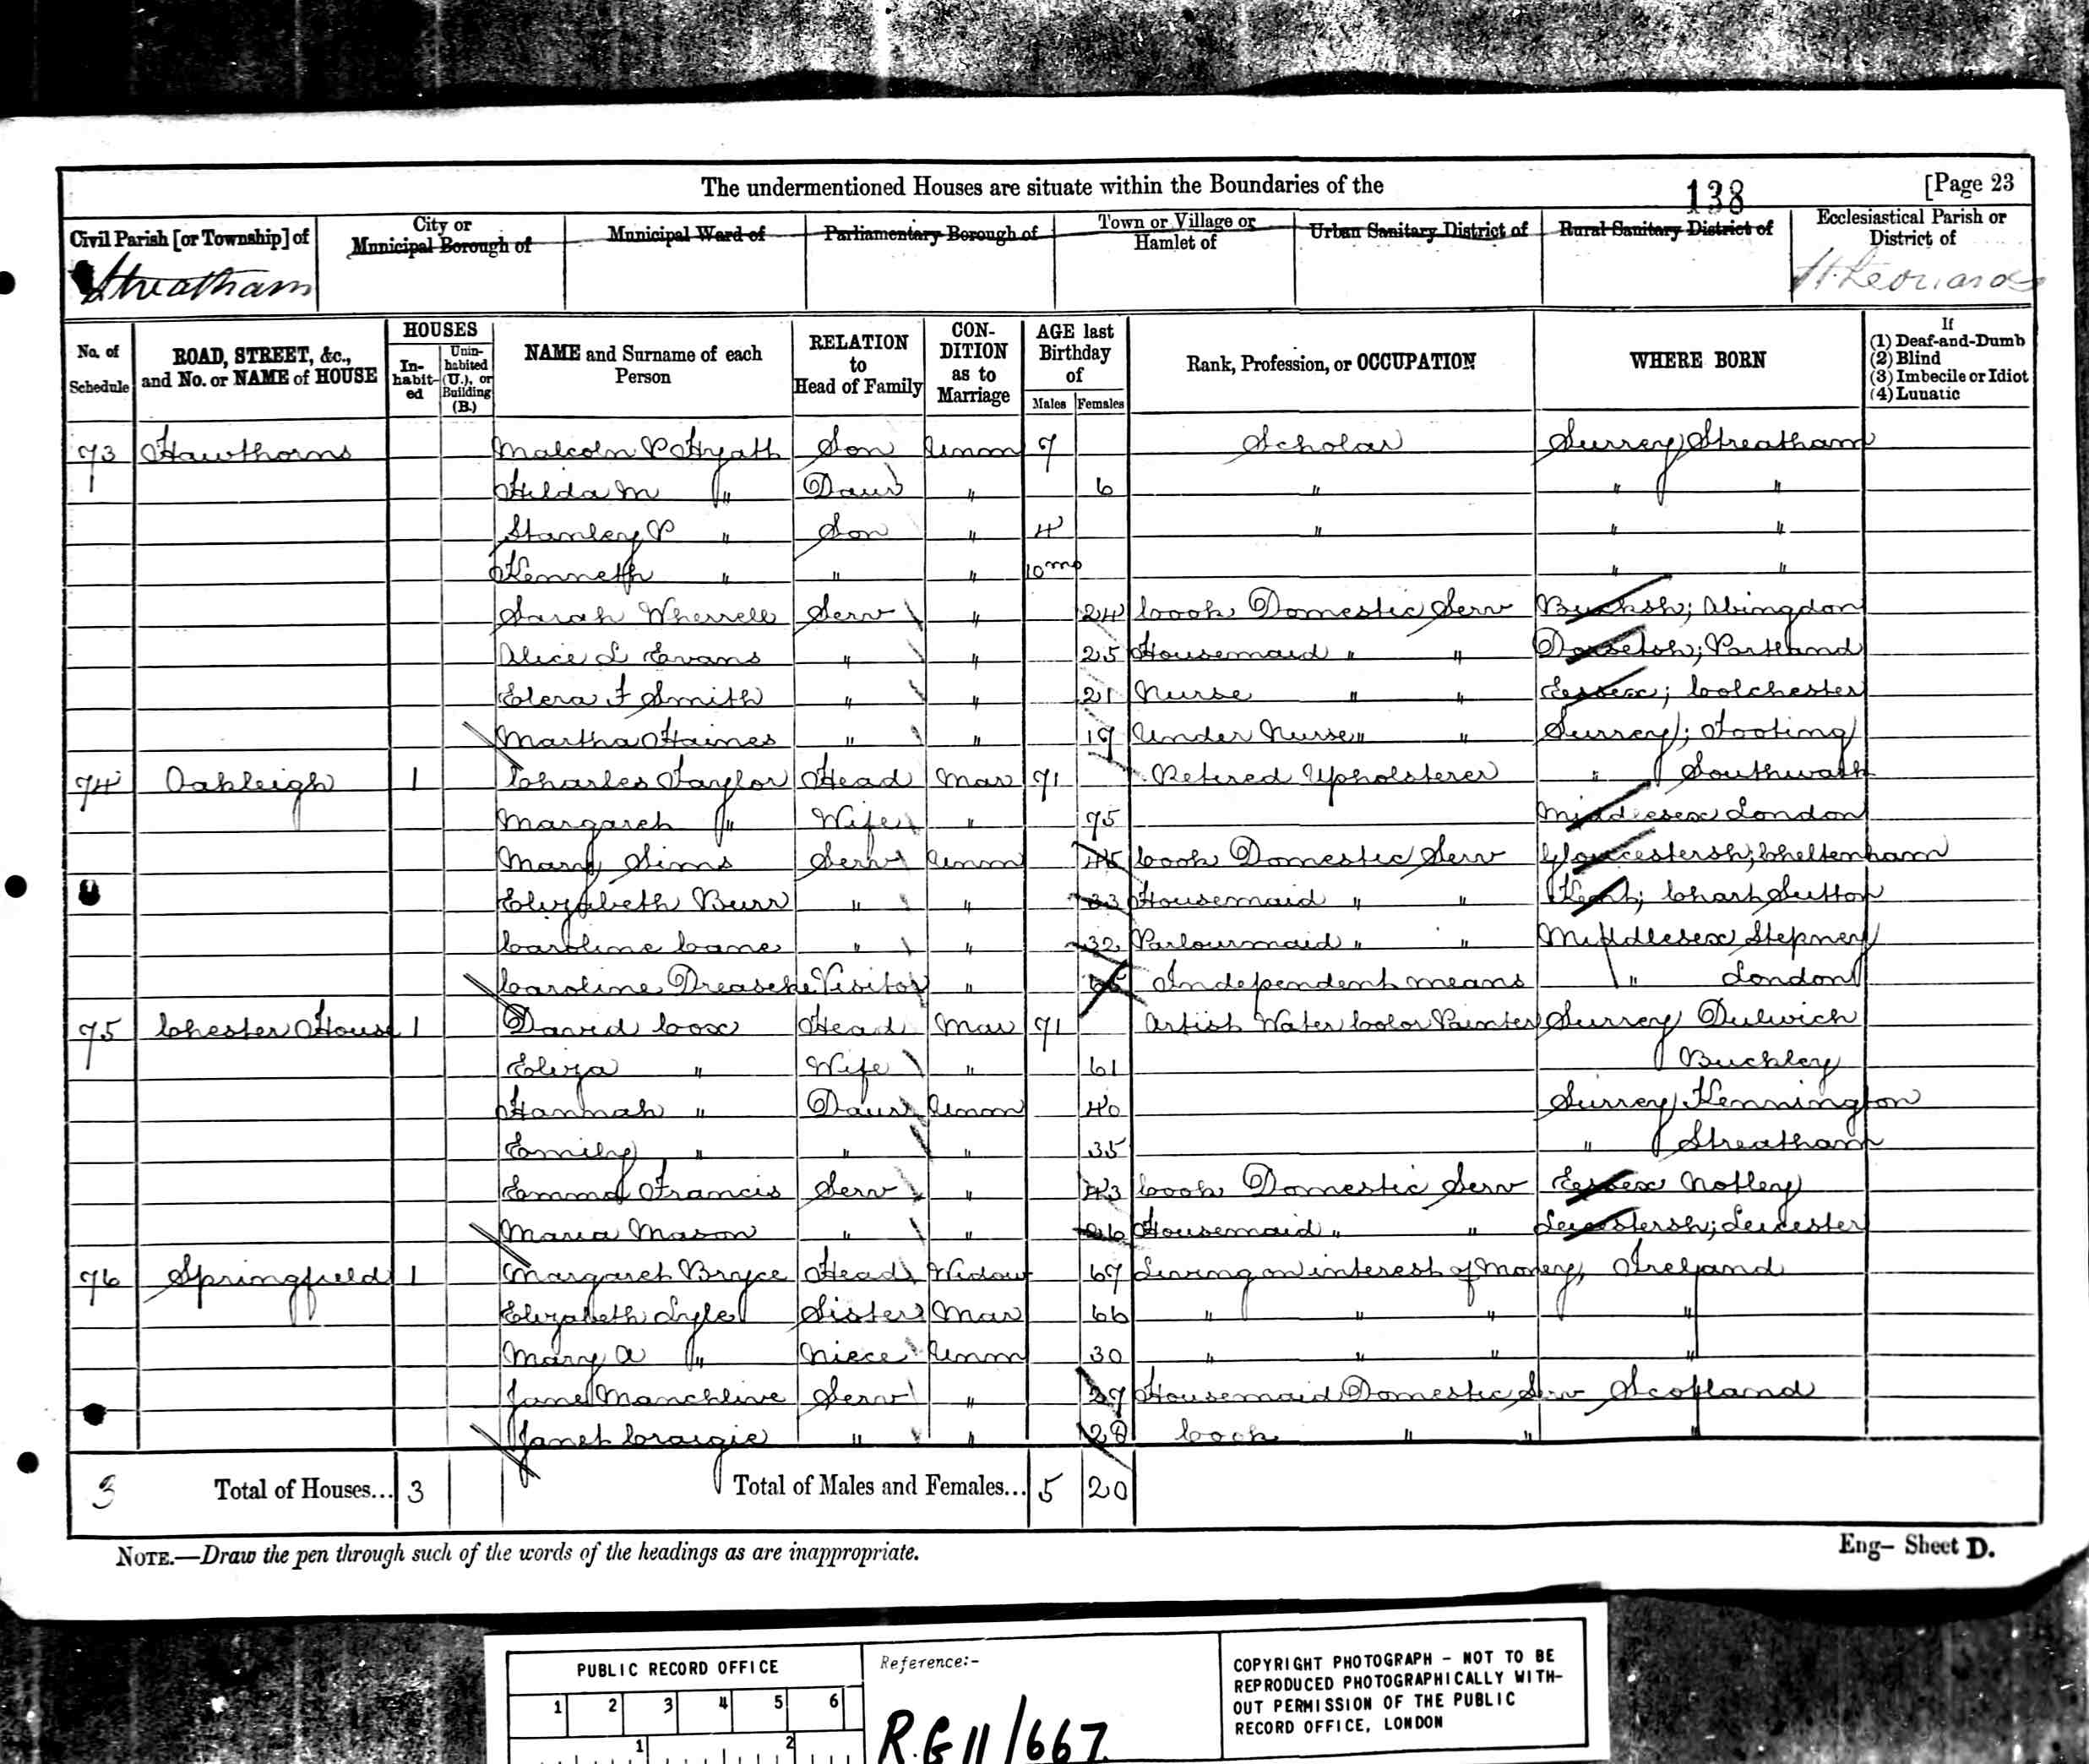 The undermentioned Houses are situate within the Boundaries of the 138 [Page 23
Civil Parish [or Township] of City or Municipal Borough of Municipal Ward of Parliamentary Borough of Town or Village or Hamlet of Urban Sanitary District of Rural Sanitary District of Ecclesiastical Parish or District of
Streatham St. Leonards
No. of Schedule ROAD, STREET, &c., and No. or NAME of HOUSE HOUSES In-habit-ed Unin-habited (U.), or Building (B.) NAME and Surname of each Person RELATION to Head of Family CON-DITION as to Marriage AGE last Birthday of Males Females Rank, Profession, or OCCUPATION WHERE BORN If (1) Deaf-and-Dumb (2) Blind (3) Imbecile or Idiot (4) Lunatic
73 Hawthorns Malcolm P Hyath Son Unm 7 Scholar Surrey Streatham
Hilda M " Daur " 6 " " "
Stanley P " Son " 4 " " "
Kenneth " " " 10mo " "
Sarah Wherrell Serv " 24 Cook Domestic Serv Bucksh; Abingdon
Alice L Evans " " 25 Housemaid " " Dorsetsh; Portland
Clera F Smith " " 21 Nurse " " Essex; Colchester
Martha Haines " " 19 Under Nurse " " Surrey; Tooting
74 Oakleigh 1 Charles Taylor Head Mar 71 Retired Upholsterer " Southwark
Margaret " Wife " 75 Middlesex London
Mary Sims Serv Unm 45 Cook Domestic Serv Gloucestersh; Cheltenham
Elizabeth Burr " " 33 Housemaid " " Kent; Chart Sutton
Caroline Cane " " 32 Parlourmaid " " Middlesex Stepney
Caroline Visitor " Independent means " London
75 Chester House 1 David Cox Head Mar 71 Artist Water Color Painter Surrey Dulwich
Eliza " Wife " 61 Buckley
Hannah " Daur Unm 40 Surrey Kennington
Emily " " " 35 " Streatham
Emma Francis Serv " 43 Cook Domestic Serv Essex Notley
Maria Mason " " 26 Housemaid " " Leicestersh; Leicester
76 Springfield 1 Margaret Bryce Head Widow 67 Living on interest of Money, Ireland
Elizabeth Lyle Sister Mar 66 " " " "
Mary A " Niece Unm 30 " " " "
Jane Manchline Serv " 27 Housemaid Domestic Serv Scotland
Janet Craigie " " 28 Cook " " "
3 Total of Houses... 3 Total of Males and Females... 5 20
NOTE.—Draw the pen through such of the words of the headings as are inappropriate. Eng– Sheet D.
PUBLIC RECORD OFFICE
1 2 3 4 5 6
1 2
Reference:-
R.G 11/667
COPYRIGHT PHOTOGRAPH - NOT TO BE
REPRODUCED PHOTOGRAPHICALLY WITH-
OUT PERMISSION OF THE PUBLIC
RECORD OFFICE, LONDON